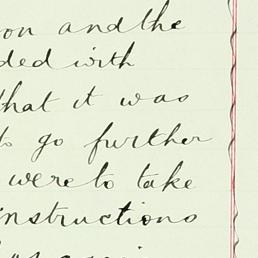 on and the
ded with
that it was
to go further
were to take
instructions